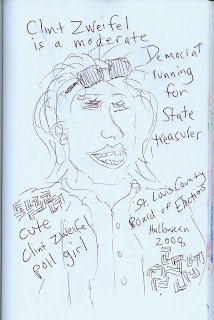 Clint Zweifel
is a moderate
Democrat
running
for
State
treasuler
cute
Clint Zweifel
poll girl
St. Louis County
Board of Elections
Halloween
2008